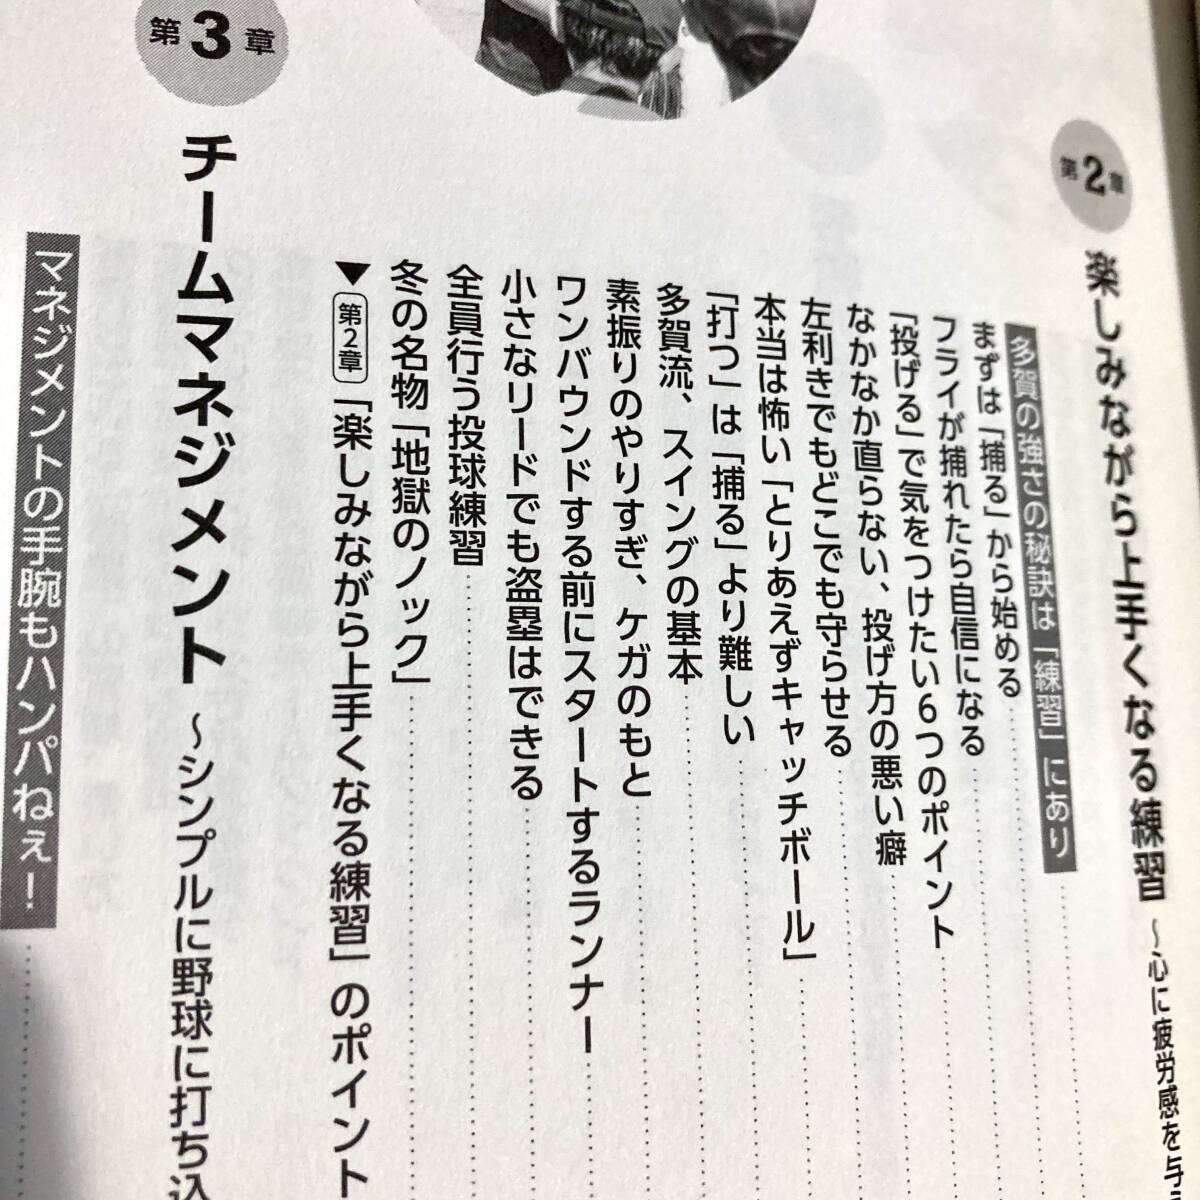 第2章
楽しみながら上手くなる練習 ～心に疲労感を与
多賀の強さの秘訣は「練習」にあり
まずは「捕る」から始める
フライが捕れたら自信になる
「投げる」で気をつけたい6つのポイント
なかなか直らない、投げ方の悪い癖
左利きでもどこでも守らせる
本当は怖い「とりあえずキャッチボール」
「打つ」は「捕る」より難しい
多賀流、スイングの基本
素振りのやりすぎ、ケガのもと
ワンバウンドする前にスタートするランナー
小さなリードでも盗塁はできる
全員行う投球練習
冬の名物「地獄のノック」
▼第2章「楽しみながら上手くなる練習」のポイント
第3章
チームマネジメント ～シンプルに野球に打ち込
マネジメントの手腕もハンパねぇ！